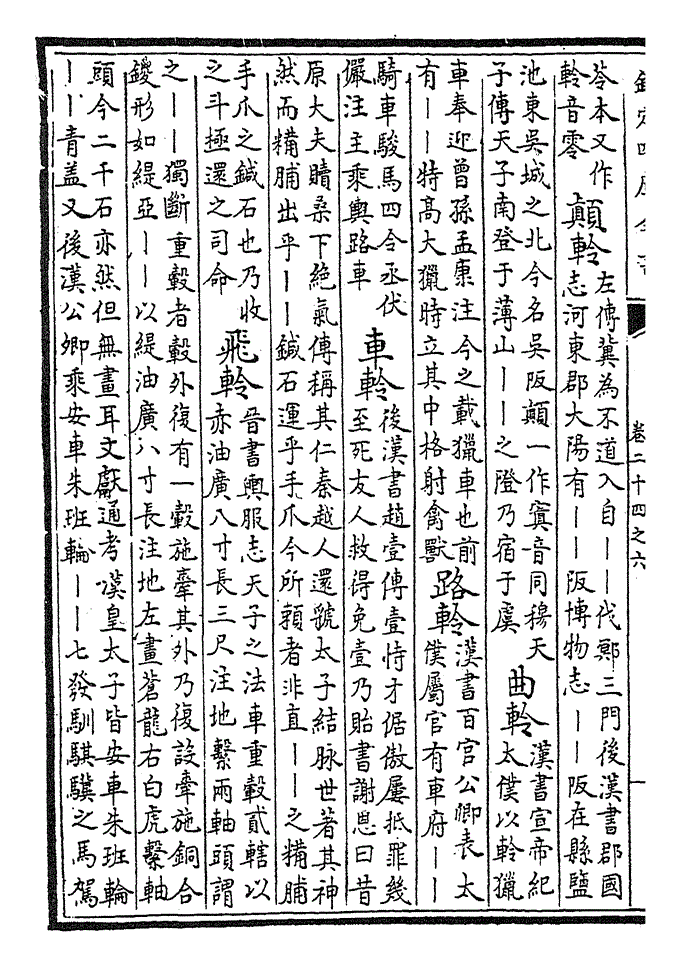 卷二十四之六
苓本又作
軨音零
顛軨
左傳冀為不道入自——伐鄍三門後漢書郡國
志河東郡大陽有——阪博物志——阪在縣鹽
池東吳城之北今名吳阪顛一作寘音同穆天
子傳天子南登于薄山——之隥乃宿于虞
曲軨
漢書宣帝紀
太僕以軨獵
車奉迎曾孫孟康注今之載獵車也前
有——特高大獵時立其中格射禽獸
路軨
漢書百官公卿表太
僕屬官有車府——
騎車駿馬四令丞伏
儼注主乘輿路車
車軨
後漢書趙壹傳壹恃才倨傲屢抵罪幾
至死友人救得免壹乃貽書謝恩曰昔
原大夫贖桑下絕氣傳稱其仁秦越人還虢太子結脉世著其神
然而糒脯出乎——鍼石運乎手爪今所賴者非直——之糒脯
手爪之鍼石也乃收
之斗極還之司命
飛軨
晉書輿服志天子之法車重轂貳轄以
赤油廣八寸長三尺注地繫兩軸頭謂
之——獨斷重轂者轂外復有一轂施牽其外乃復設牽施銅合
鑁形如緹亞——以緹油廣八寸長注地左畫蒼龍右白虎繫軸
頭今二千石亦然但無畫耳文獻通考漢皇太子皆安車朱班輪
——青蓋又後漢公卿乘安車朱班輪——七發馴騏驥之馬駕